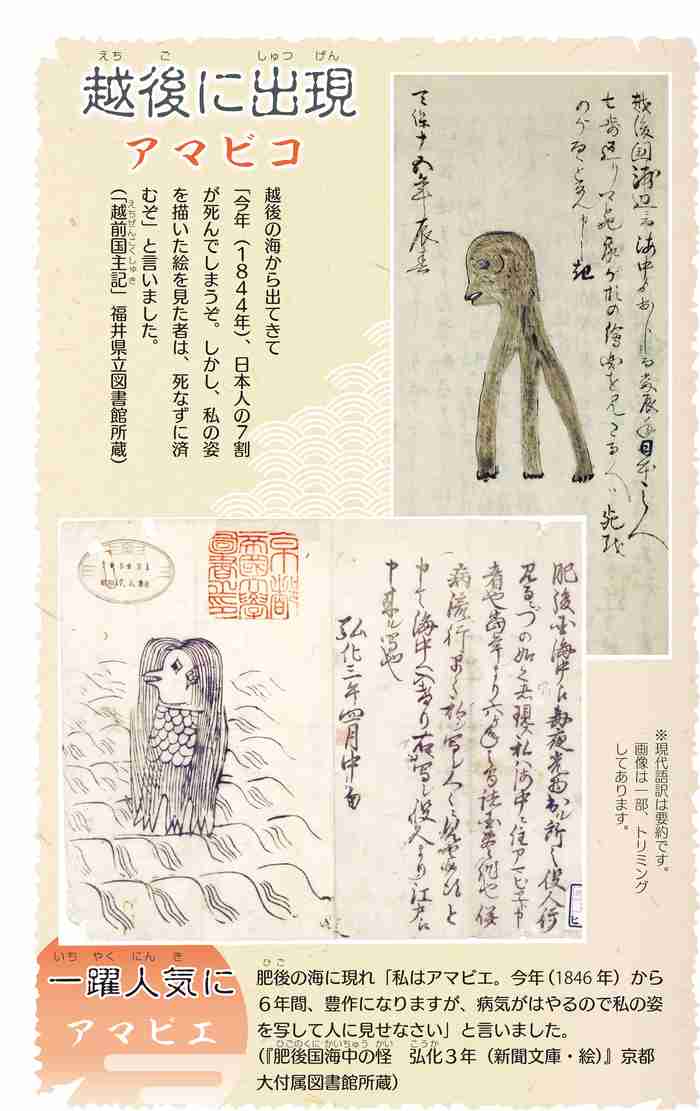 えち ご しゅつ げん
越後に出現
アマビコ
越後の海から出てきて
「今年（1844年）、日本人の7割
が死んでしまうぞ。しかし、私の姿
を描いた絵を見た者は、死なずに済
むぞ」と言いました。
えちぜんこくしゅき
（「越前国主記」福井県立図書館所蔵）
天保十五年辰春
京都
帝國大學
圖書之印
肥後国海中江毎夜光物出ル所之役人行
見るニづの如く者現ス私ハ海中ニ住アマビヱト申
者也当年より六ヶ年之間諸国豊作也併
病流行早々私ヲ写シ人々ニ見せ候得と
申て海中へ入けり右写シ役人より江戸江
申来ル写也
弘化三年四月中旬
※現代語訳は要約です。
画像は一部、トリミング
してあります。
いち やく にん き
一躍人気に
アマビエ
ひご
肥後の海に現れ「私はアマビエ。今年（1846年）から
６年間、豊作になりますが、病気がはやるので私の姿
を写して人に見せなさい」と言いました。
ひごのくに かいちゅう かい こうか
（『肥後国海中の怪　弘化３年（新聞文庫・絵）』京都
大付属図書館所蔵）